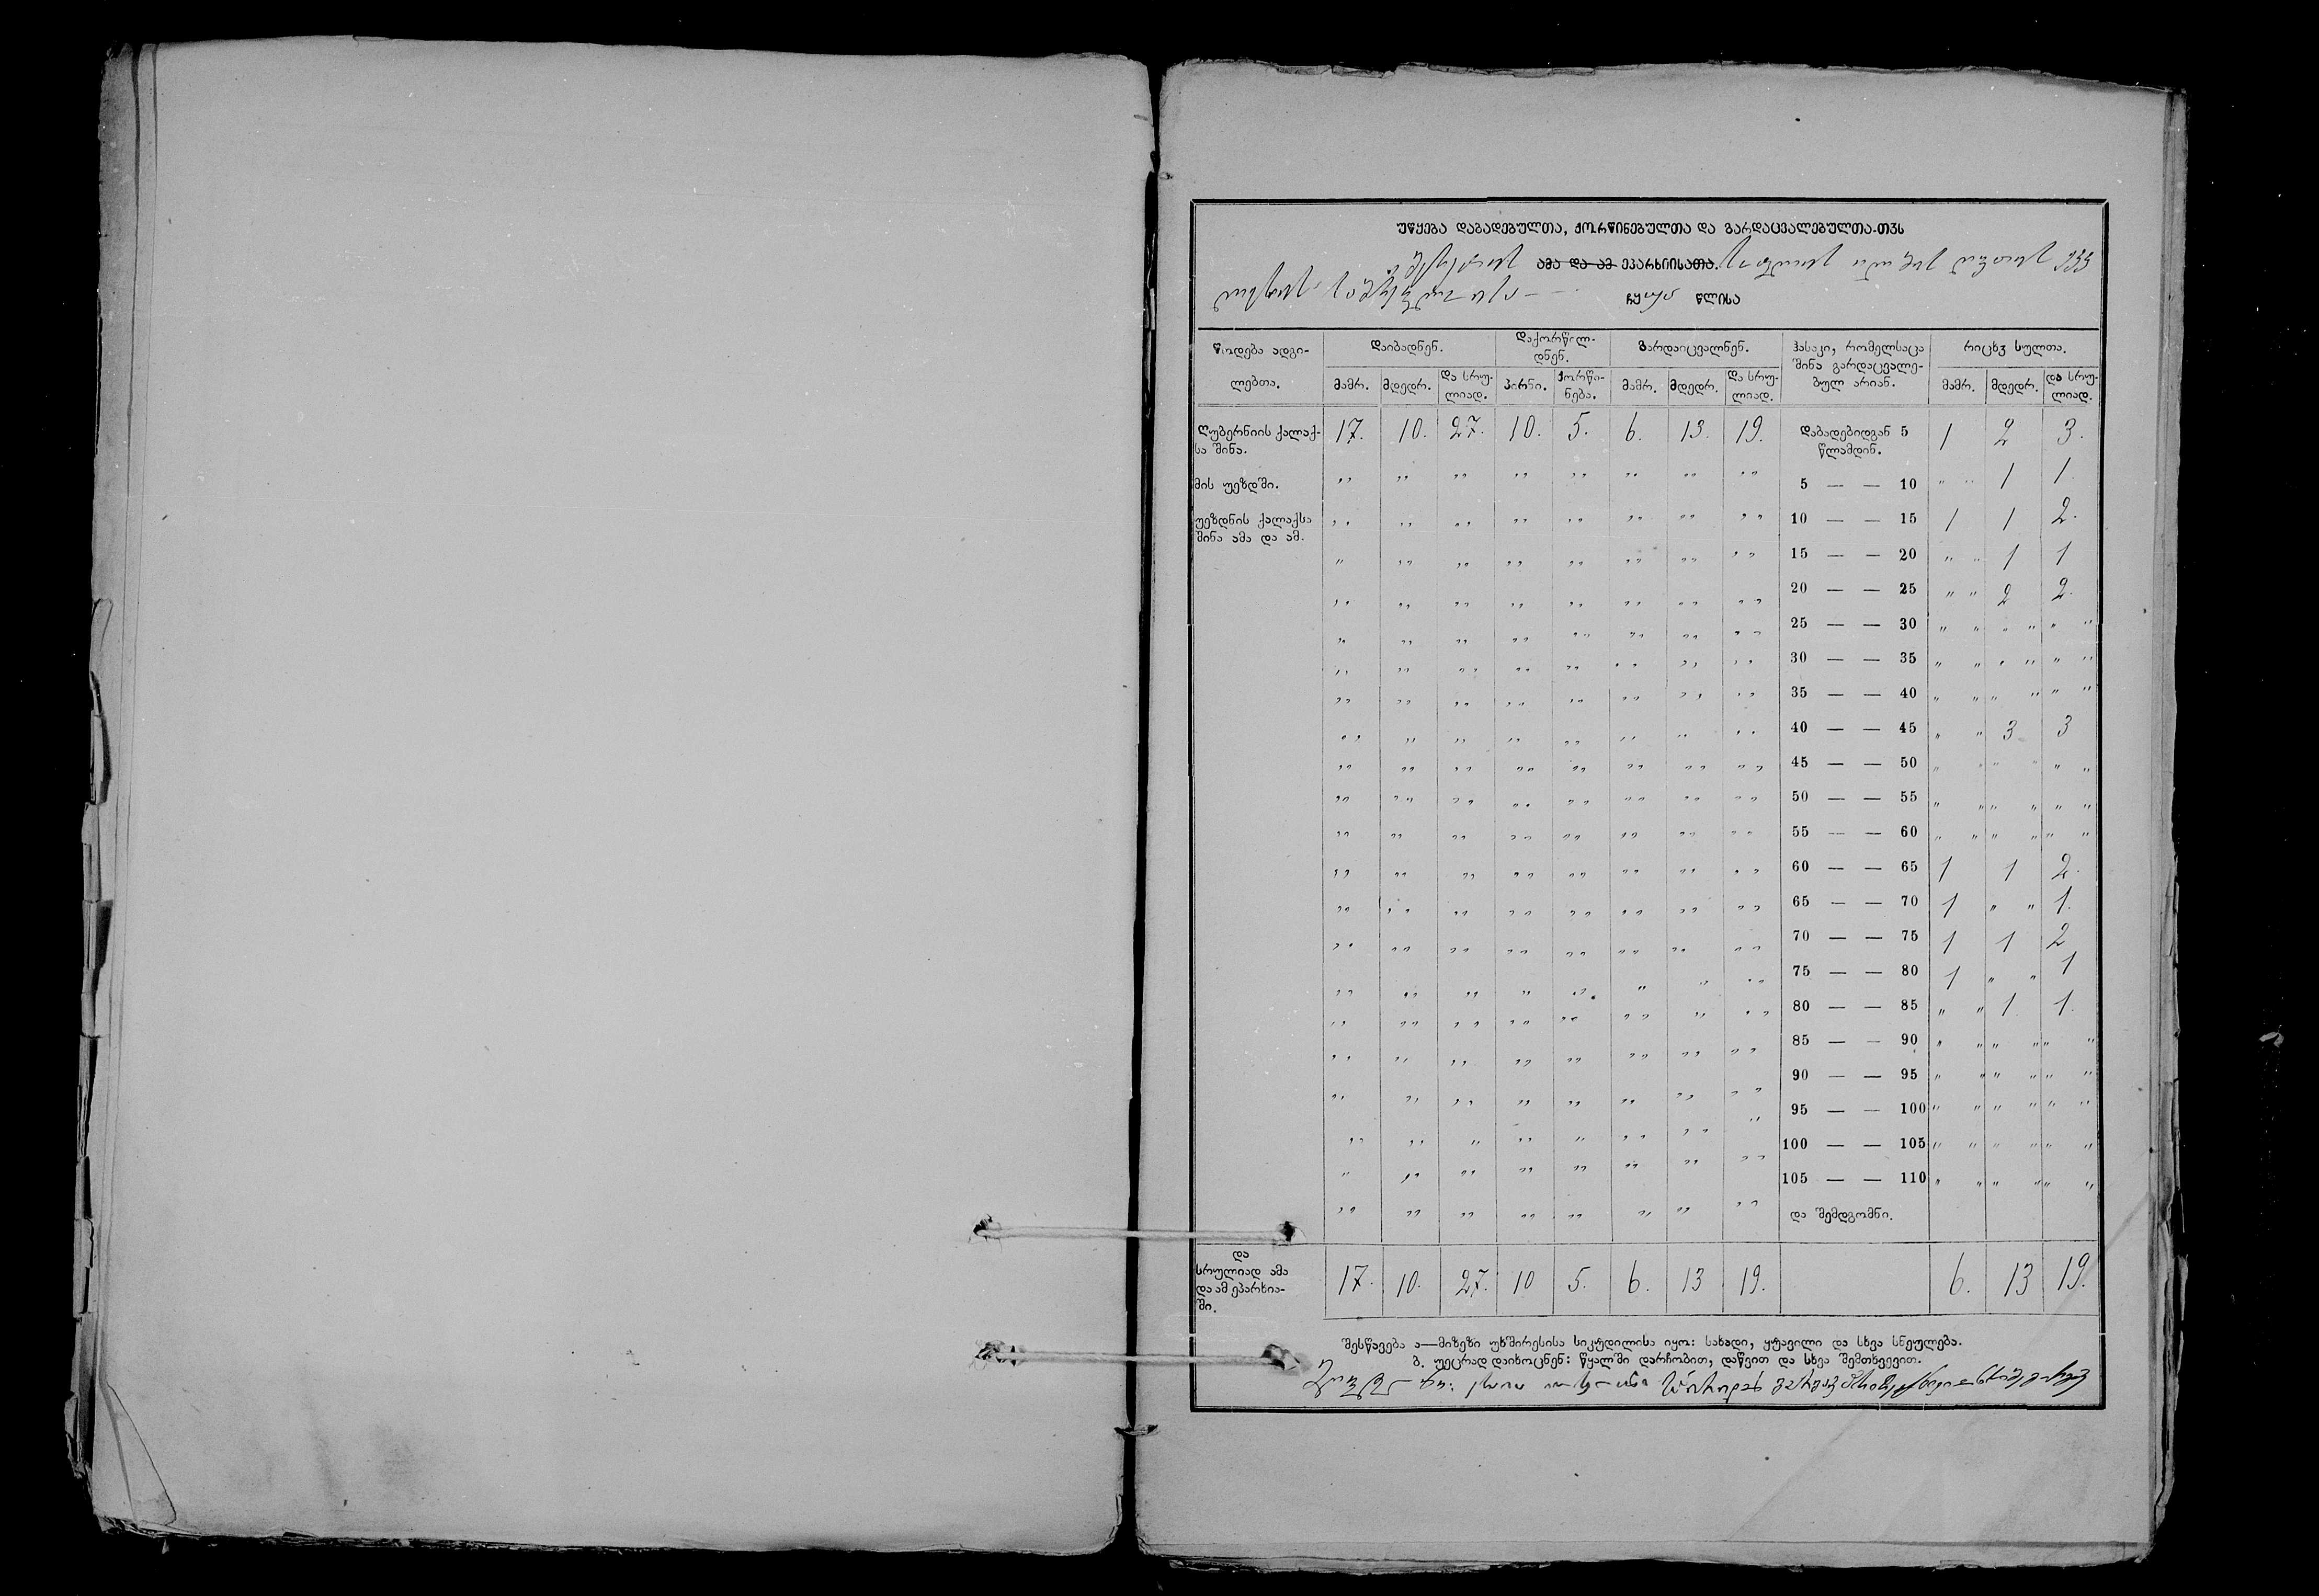 უწყება დაბადებულთა, ქორწინებულთა და გარდაცვალებულთა-თჳს
ამა და ამ ეპარხიისათა.
ჩყ წლისა
წოდება ადგილებთა. დაიბადნენ. დაქორწილდნენ. გარდაიცვალნენ. ჰასაკი, რომელსაცა შინა გარდაცვალებულ არიან. რიცხჳ სულთა.
მამრ. მდედრ. და სრულიად. პირნი. ქორწინება. მამრ. მდედრ. და სრულიად. მამრ. მდედრ. და სრულიად.
ღუბერნიის ქალაქსა შინა. 17. 10. 27. 10. 5. 6. 13. 19. დაბადებიდგან 5 წლამდინ. 1 2 3.
მის უეზდში. „ „ „ „ „ „ „ „ 5 — — 10 „ 1 1.
უეზდნის ქალაქსა შინა ამა და ამ. „ „ „ „ „ „ „ „ 10 — — 15 1 1 2.
„ „ „ „ „ „ „ „ 15 — — 20 „ 1 1
„ „ „ „ „ „ „ „ 20 — — 25 „ 2 2.
„ „ „ „ „ „ „ „ 25 — — 30 „ „ „
„ „ „ „ „ „ „ „ 30 — — 35 „ „ „
„ „ „ „ „ „ „ „ 35 — — 40 „ „ „
„ „ „ „ „ „ „ „ 40 — — 45 „ 3 3
„ „ „ „ „ „ „ „ 45 — — 50 „ „ „
„ „ „ „ „ „ „ „ 50 — — 55 „ „ „
„ „ „ „ „ „ „ „ 55 — — 60 „ „ „
„ „ „ „ „ „ „ „ 60 — — 65 1 1 2.
„ „ „ „ „ „ „ „ 65 — — 70 1 „ 1.
„ „ „ „ „ „ „ „ 70 — — 75 1 1 2
„ „ „ „ „ „ „ „ 75 — — 80 1 „ 1
„ „ „ „ „ „ „ „ 80 — — 85 „ 1 1.
„ „ „ „ „ „ „ „ 85 — — 90 „ „ „
„ „ „ „ „ „ „ „ 90 — — 95 „ „ „
„ „ „ „ „ „ „ „ 95 — — 100 „ „ „
„ „ „ „ „ „ „ „ 100 — — 105 „ „ „
„ „ „ „ „ „ „ „ 105 — — 110 „ „ „
„ „ „ „ „ „ „ „ და შემდგომნი.
და სრულიად ამა და ამ ეპარხიაში. 17. 10. 27. 10 5. 6. 13 19. 6. 13 19.
შესწავება ა—მიზეზი უხშირესისა სიკუდილისა იყო: სახადი, ყუავილი და სხვა სნეულება.
ბ. უეცრად დაიხოცნენ: წყალში დარჩობით, დაწვით და სხვა შემთხვევით.